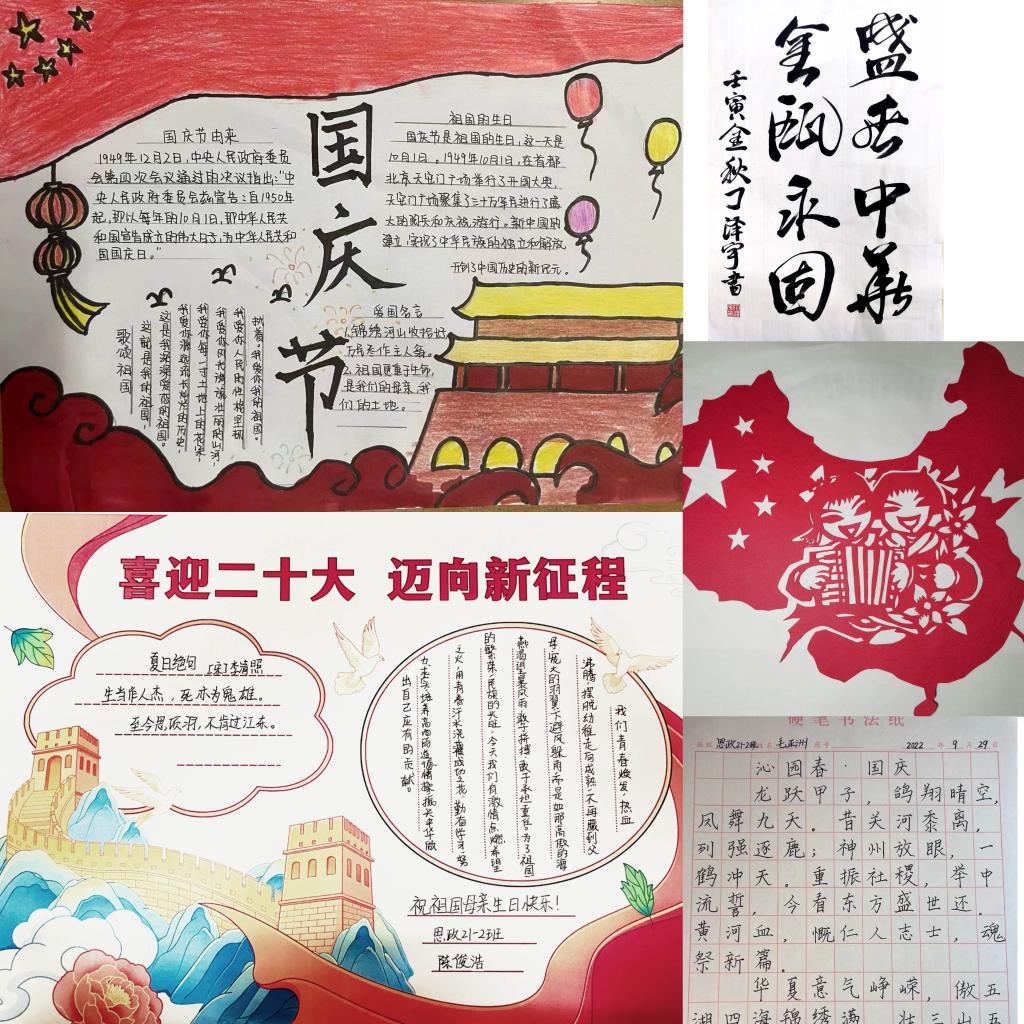 国庆节
国庆节由来
1949年12月2日,中央人民政府委员
会第四次会议通过的决议指出:"中
央人民政府委员会兹宣告:自1950年
起,即以每年的10月1日,即中华人民共
和国宣告成立的伟大日子,为中华人民共和
国国庆日。"
祖国的生日
国庆节是祖国的生日,这一天是
10月1日。1949年10月1日,在首都
北京天安门广场举行了开国大典,
天安门广场聚集三十万军民进行了盛
大的阅兵和庆祝游行。新中国的
建立,实现了中华民族的独立和解放
开创了中国历史的新纪元。
爱国名言
1.锦绣河山收拾好,
万民尽作主人翁。
2.祖国更重于生命,
是我们的母亲,我
们的土地。
我爱你我的祖国。
我爱你人民的性格坚韧
我爱你风光旖旎壮丽的山河,
我爱你每一寸土地上的花朵,
我爱你源远流长灿烂的历史,
这是我深深爱恋的祖国。
这就是我的祖国,
歌颂祖国
盛世中华
金瓯永固
壬寅金秋丁泽宇书
喜迎二十大 迈向新征程
夏日绝句 [宋]李清照
生当作人杰,死亦为鬼雄。
至今思项羽,不肯过江东。
我们青春焕发,热血
沸腾,摆脱幼稚走向成熟,不再藏到父
母宽大的羽翼下避风躲雨而是如那高傲的海
燕渴望暴风雨敢于拼搏敢于承担重任。为了祖国
的繁荣,民族的兴旺,今天我们有激情点燃希望
之火,用青春汗水浇灌成功之花,勤奋学习努
力
出自己应有的贡献。
祝祖国母亲生日快乐!
思政21-2班
陈俊浩
硬笔书法纸
班级 思政21-2班 姓名 毛亚洲 座号 2022 年 9 月 29 日
沁园春·国庆
龙跃甲子,鸽翔晴空,
凤舞九天。昔关河黍离,
列强逐鹿;神州放眼,一
鹤冲天。重振社稷,举中
流誓,今看东方盛世还。
黄河血,慨仁人志士,魂
祭新篇。
华夏意气峥嵘,傲五
湖四海锦绣满 壮三山五